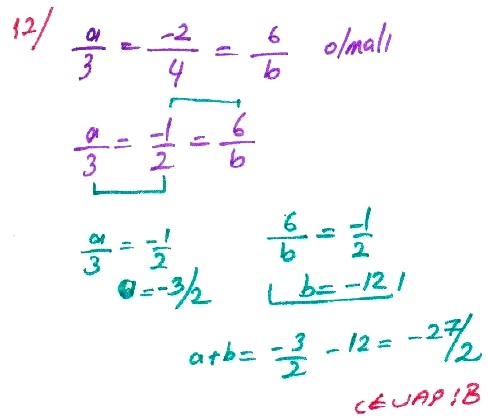 12/ a/3 = -2/4 = 6/b olmalı
a/3 = -1/2 = 6/b
a/3 = -1/2 6/b = -1/2
a = -3/2 b = -12
a+b = -3/2 - 12 = -27/2
CEVAP : B